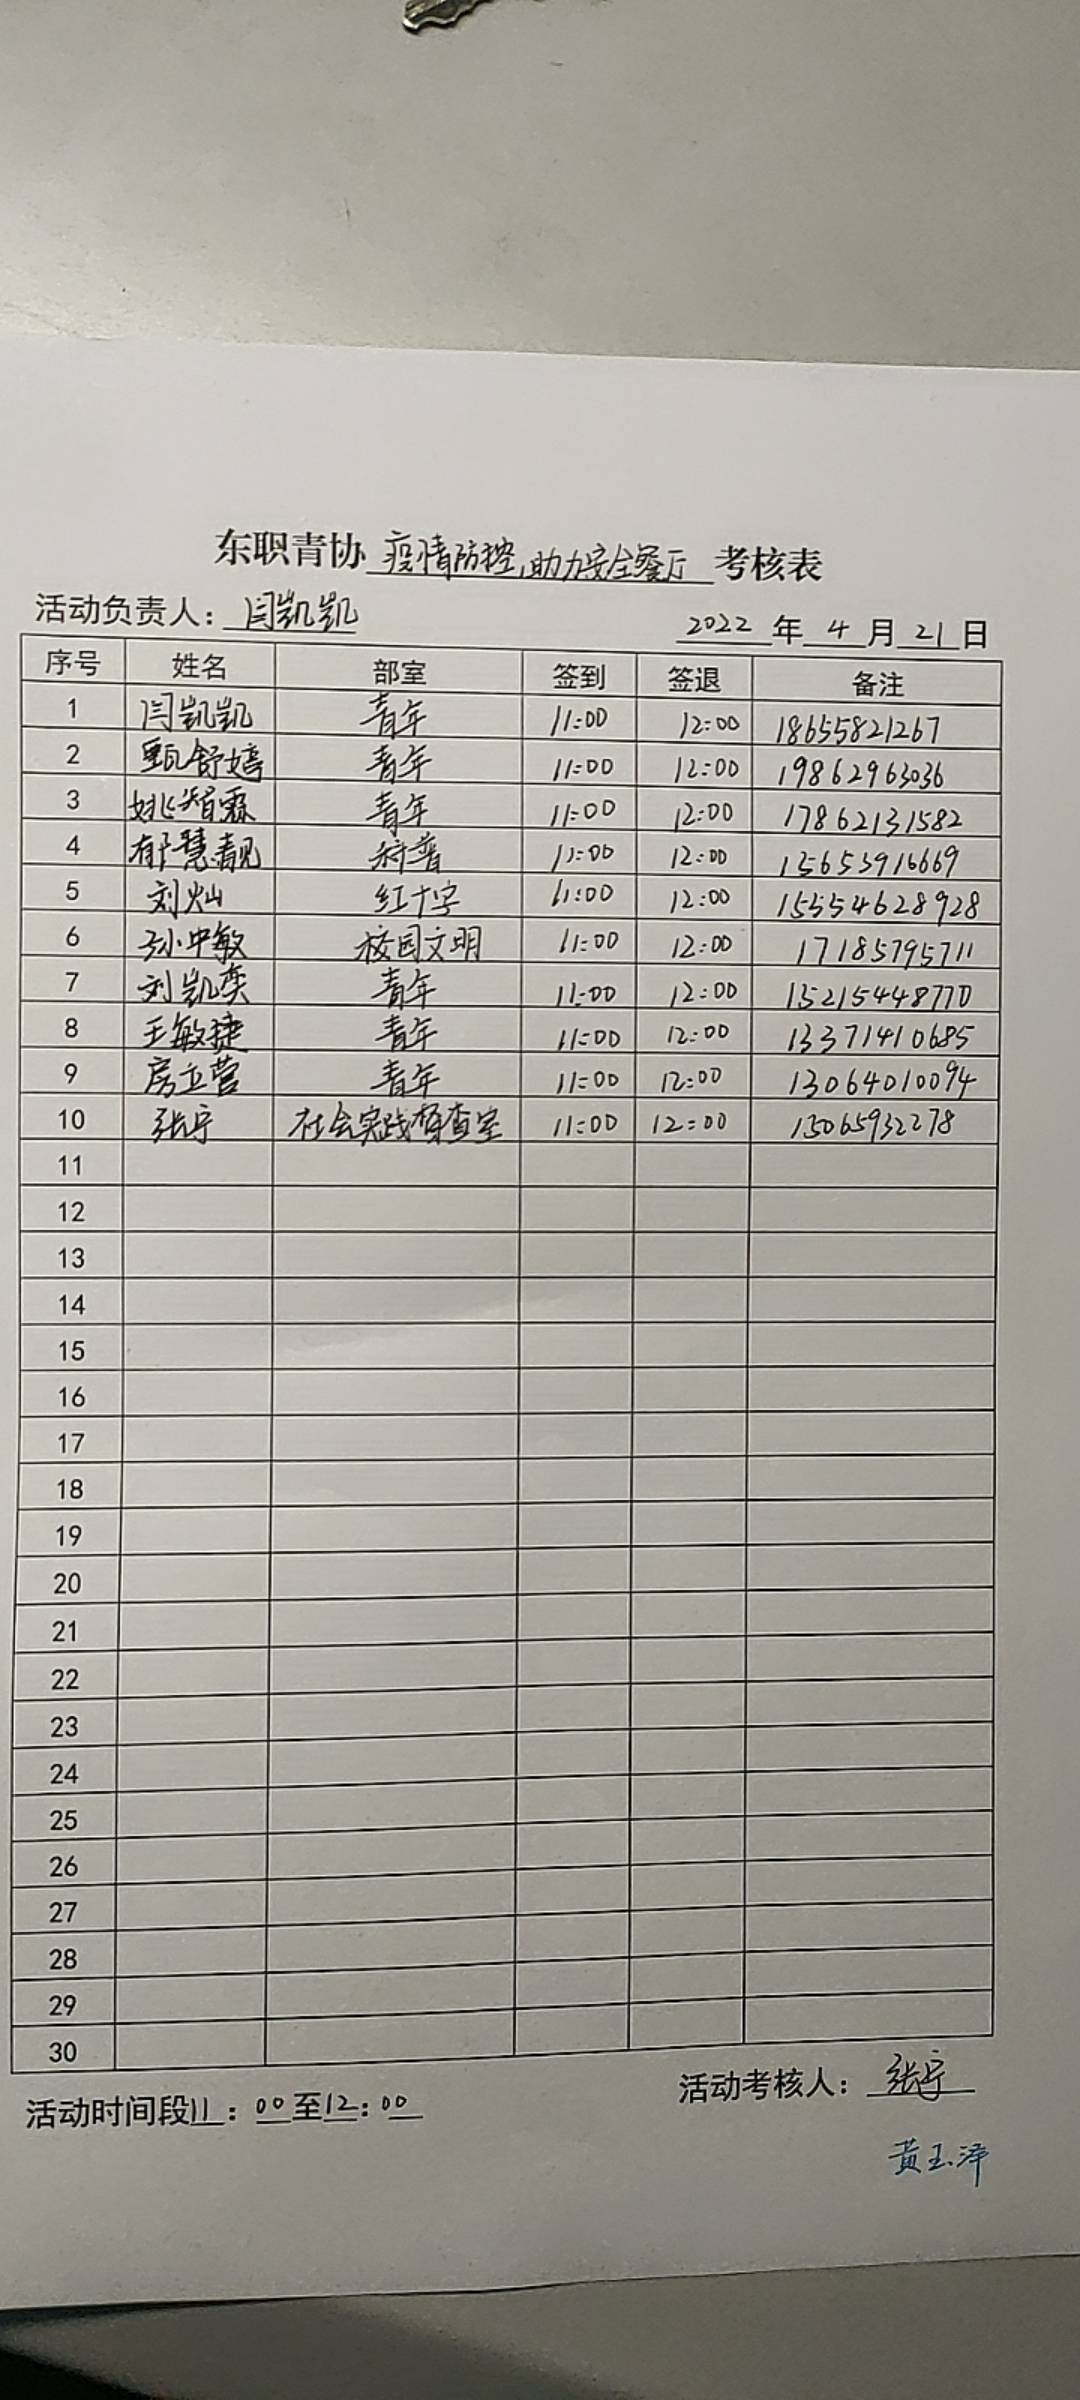 东职青协 疫情防控,助力安全餐厅 考核表
活动负责人: 闫凯凯
2022 年 4 月 21 日
序号 姓名 部室 签到 签退 备注
1 闫凯凯 青年 11:00 12:00 18655821267
2 甄舒婷 青年 11:00 12:00 19862963036
3 姚智霖 青年 11:00 12:00 17862131582
4 郁慧靓 科普 11:00 12:00 15653916669
5 刘灿 红十字 11:00 12:00 15554628928
6 孙中敏 校园文明 11:00 12:00 17185795711
7 刘凯奕 青年 11:00 12:00 15215448770
8 王敏捷 青年 11:00 12:00 13371410685
9 房立营 青年 11:00 12:00 13064010094
10 张宁 社会实践督查室 11:00 12:00 15065932278
11
12
13
14
15
16
17
18
19
20
21
22
23
24
25
26
27
28
29
30
活动时间段11:00至12:00
活动考核人: 张宁
黄玉泽